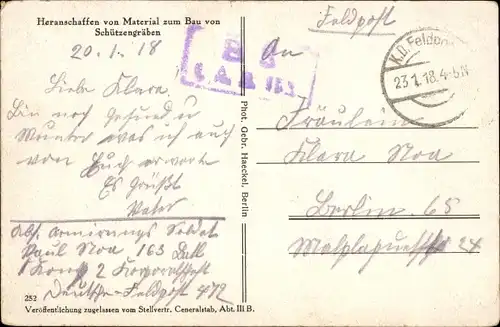 Heranschaffen von Material zum Bau von
Schützengräben
20.1.18
Liebe Klara.
Bin noch gesund u
Munter was ich auch
von Euch erwarte
Es Grüßt
Vater
Abs. Armirungs Soldat
Paul Noa 163 Batl
1 Komp 2 Korporalschaft
Deutsche-Feldpost 472
252
Veröffentlichung zugelassen vom Stellvertr. Generalstab, Abt. III B.
Phot. Gebr. Haeckel, Berlin
Feldpost
An
K.D. Feldpost
23.1.18.4-5N
Fräulein
Klara Noa
Berlin 65
Malplaquetstr 24